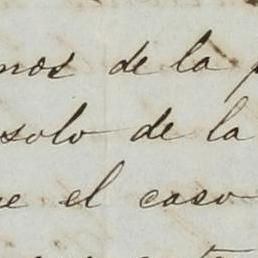 mos de la p
solo de la
ue el caso